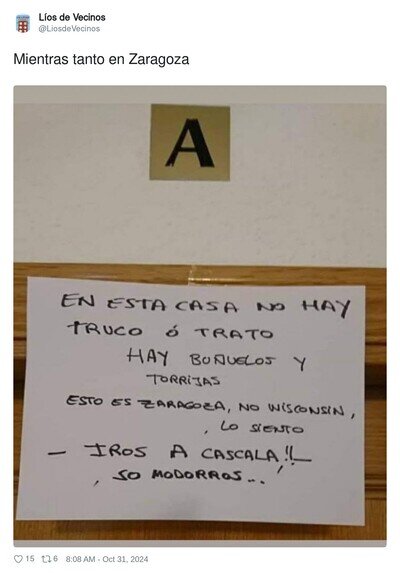 Líos de Vecinos
@LiosdeVecinos
Mientras tanto en Zaragoza
A
EN ESTA CASA NO HAY
TRUCO Ó TRATO
HAY BUÑUELOS Y
TORRIJAS
ESTO ES ZARAGOZA, NO WISCONSIN,
, LO SIENTO
- IROS A CASCALA!!
, SO MODORROS...
15 6 8:08 AM - Oct 31, 2024